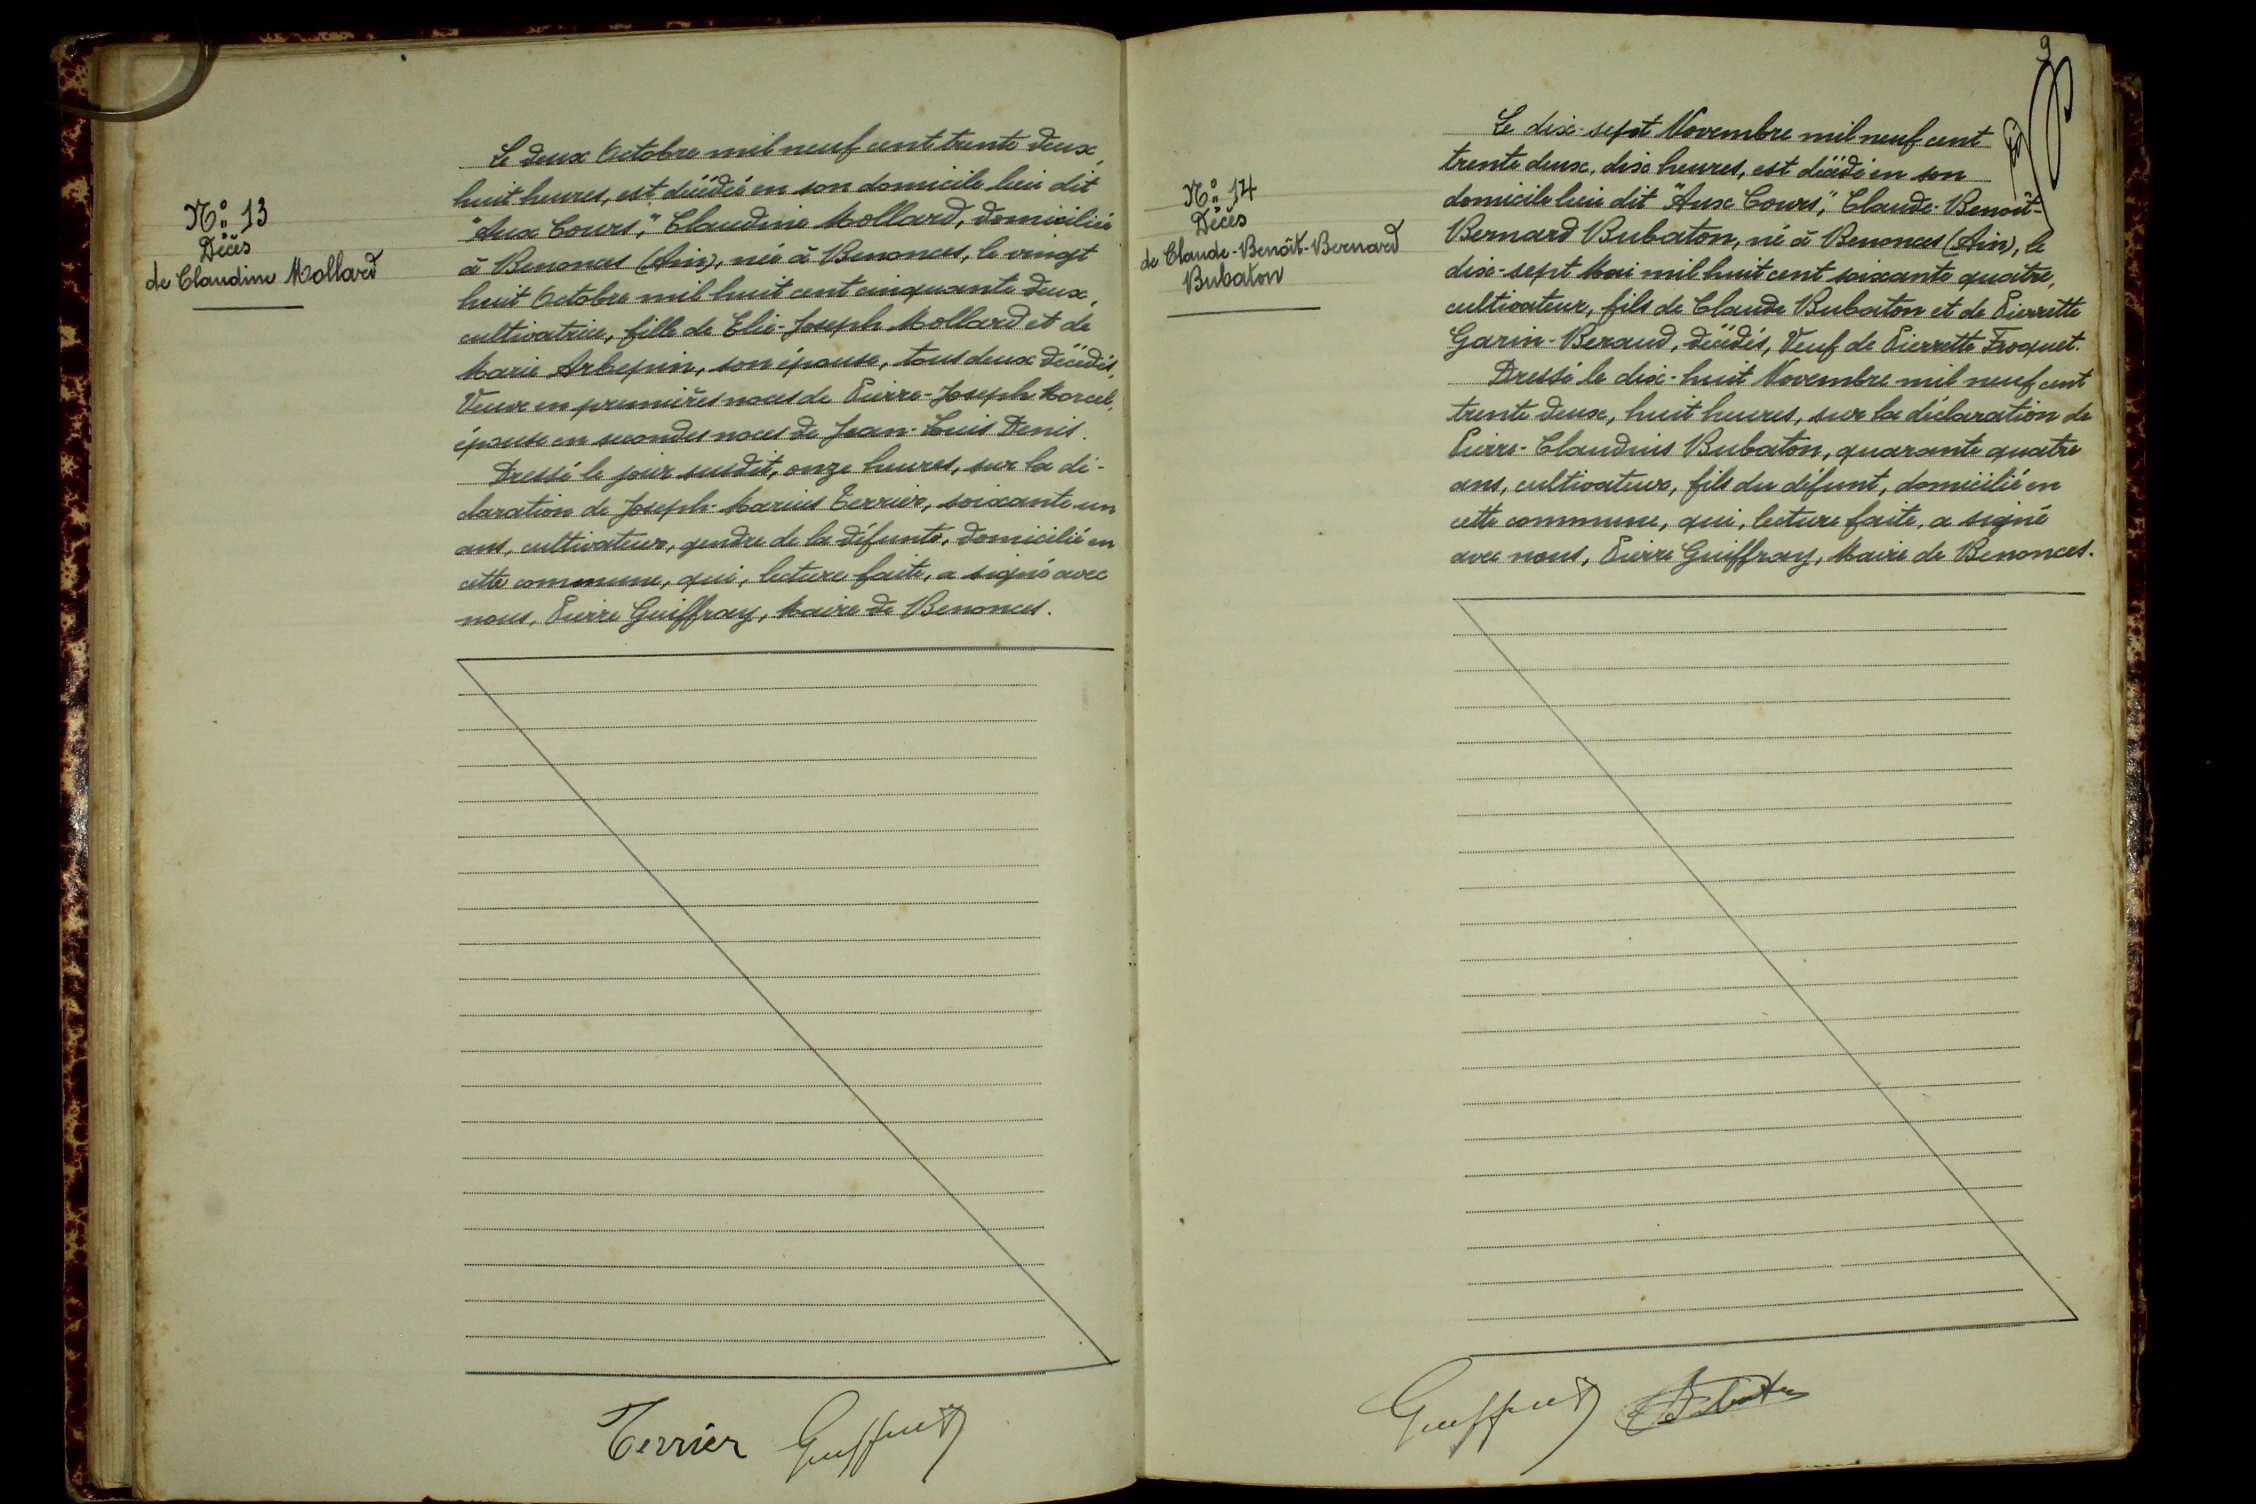 N° 13
Décès
de Claudine Mollard
Le deux Octobre mil neuf cent trente deux,
huit heures, est décédée en son domicile lieu dit
"Aux Cours," Claudine Mollard, domiciliée
à Benonces (Ain), née à Benonces, le vingt
huit Octobre mil huit cent cinquante deux,
cultivatrice, fille de Elie-Joseph Mollard et de
Marie Arbepin, son épouse, tous deux décédés,
Veuve en premières noces de Pierre-Joseph Morcel,
épouse en secondes noces de Jean-Louis Denis.
Dressé le jour susdit, onze heures, sur la dé-
claration de Joseph-Marius Terrier, soixante un
ans, cultivateur, gendre de la défunte, domicilié en
cette commune, qui, lecture faite, a signé avec
nous, Pierre Guiffray, Maire de Benonces.
Terrier Guiffray
9
N° 14
Décès
de Claude-Benoît-Bernard
Bubaton
Le dix-sept Novembre mil neuf cent
trente deux, dix heures, est décédé en son
domicile lieu dit "Aux Cours," Claude-Benoît-
Bernard Bubaton, né à Benonces (Ain), le
dix-sept Mai mil huit cent soixante quatre,
cultivateur, fils de Claude Bubaton et de Pierrette
Garin-Beraud, décédés, Veuf de Pierrette Troquet.
Dressé le dix-huit Novembre mil neuf cent
trente deux, huit heures, sur la déclaration de
Pierre-Claudius Bubaton, quarante quatre
ans, cultivateur, fils du défunt, domicilié en
cette commune, qui, lecture faite, a signé
avec nous, Pierre Guiffray, Maire de Benonces.
Guiffray Bubaton